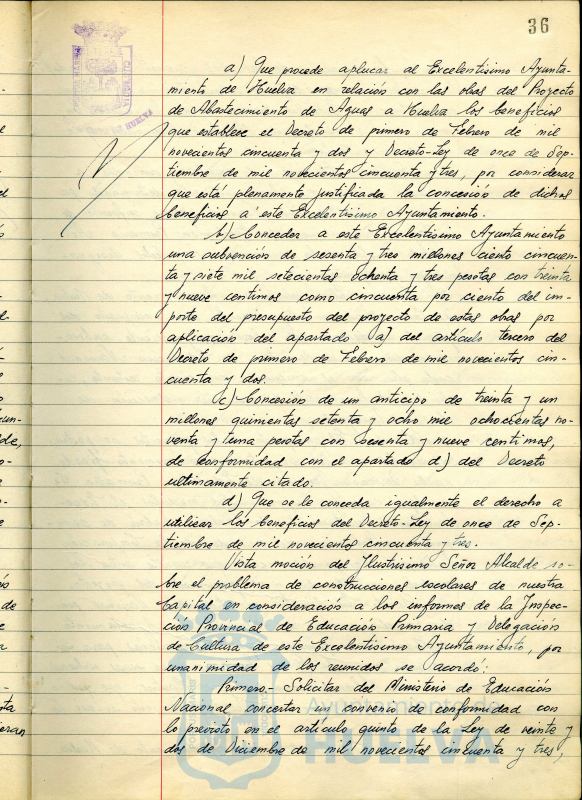 36
a) Que procede aplicar al Excelentísimo Ayunta-
miento de Huelva en relación con las obras del Proyecto
de Abastecimiento de Aguas a Huelva los beneficios
que establece el Decreto de primero de Febrero de mil
novecientos cincuenta y dos y Decreto-Ley de once de Sep-
tiembre de mil novecientos cincuenta y tres, por considerar
que está plenamente justificada la concesión de dichos
beneficios a este Excelentísimo Ayuntamiento.
b) Conceder a este Excelentísimo Ayuntamiento
una subvención de sesenta y tres millones ciento cincuen-
ta y siete mil setecientas ochenta y tres pesetas con treinta
y nueve centimos como cincuenta por ciento del im-
porte del presupuesto del proyecto de estas obras por
aplicación del apartado a) del artículo tercero del
Decreto de primero de Febrero de mil novecientos cin-
cuenta y dos.
c) Concesión de un anticipo de treinta y un
millones quinientas setenta y ocho mil ochocientas no-
venta y una pesetas con sesenta y nueve centimos,
de conformidad con el apartado d) del Decreto
ultimamente citado.
d) Que se le conceda igualmente el derecho a
utilizar los beneficios del Decreto-Ley de once de Sep-
tiembre de mil novecientos cincuenta y tres.
Vista moción del Ilustrísimo Señor Alcalde so-
bre el problema de construcciones escolares de nuestra
Capital en consideración a los informes de la Inspec-
ción Provincial de Educación Primaria y Delegación
de Cultura de este Excelentísimo Ayuntamiento, por
unanimidad de los reunidos se acordó:
Primero.- Solicitar del Ministerio de Educación
Nacional concertar un convenio de conformidad con
lo previsto en el artículo quinto de la Ley de veinte y
dos de Diciembre de mil novecientos cincuenta y tres,
HUELVA